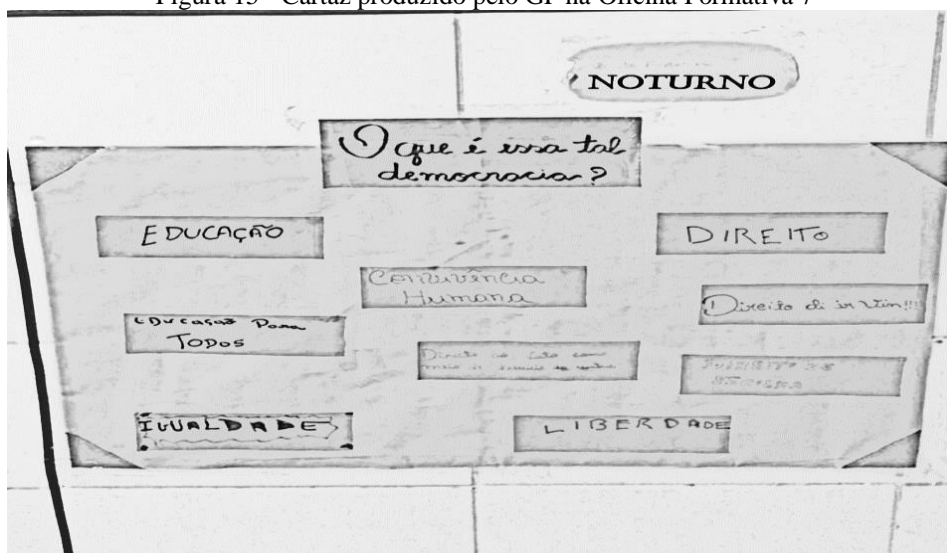 Figura 15 - Cartaz produzido pelo GP na Oficina Formativa 7
NOTURNO
O que é essa tal
democracia?
EDUCAÇÃO
DIREITO
Convivência
Humana
Direito di ir vim!!!
Educação Para
TODOS
Direito
IGUALDADE
LIBERDADE